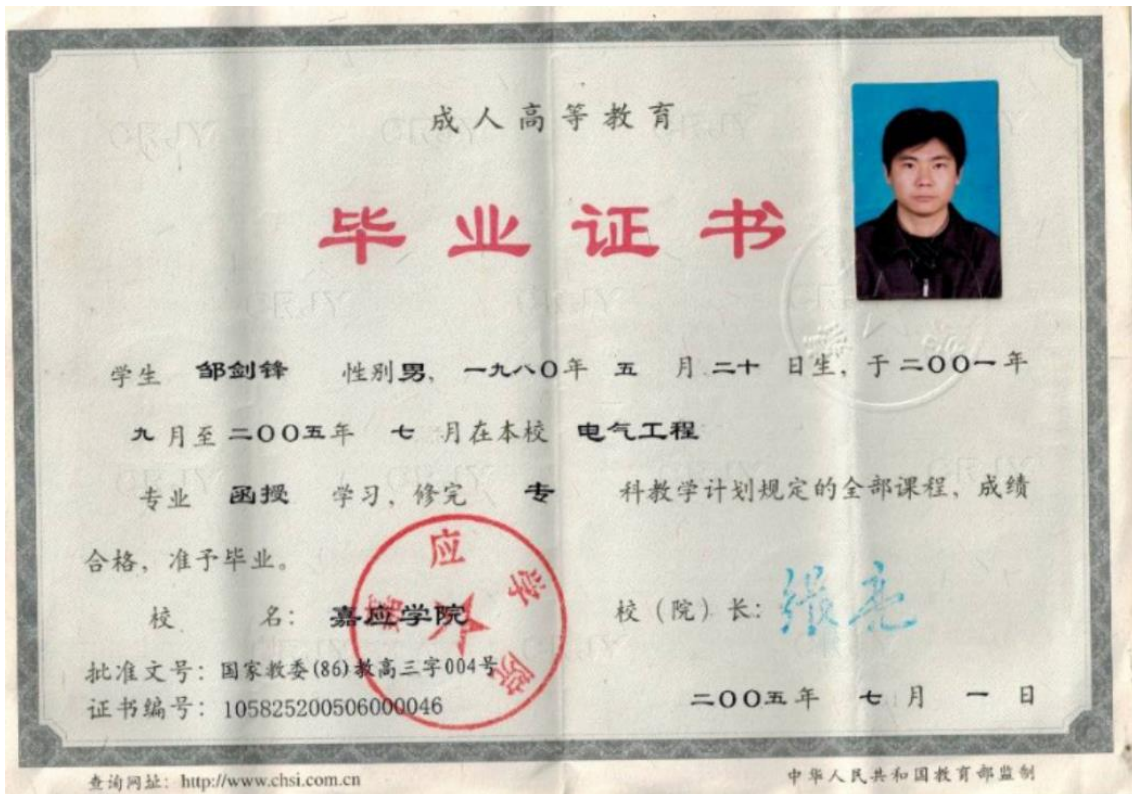 成人高等教育
毕业证书
学生 邹剑锋 性别男, 一九八〇年 五 月 二十 日生, 于二〇〇一年
九月至二〇〇五年 七 月在本校 电气工程
专业 函授 学习, 修完 专 科教学计划规定的全部课程, 成绩
合格, 准予毕业。
校 名: 嘉应学院
校(院)长: 张亮
批准文号: 国家教委(86)教高三字004号
证书编号: 105825200506000046
二〇〇五年 七 月 一 日
嘉应学院
查询网址: http://www.chsi.com.cn
中华人民共和国教育部监制